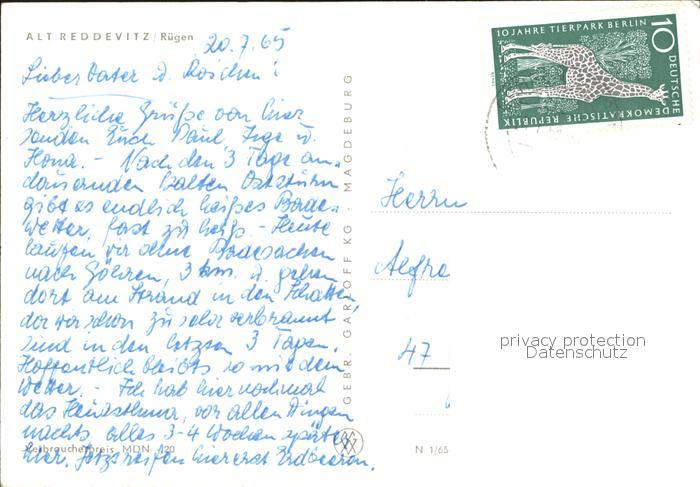 ALT REDDEVITZ / Rügen
20.7.65
Lieber Vater u. Röschen!
Herzliche Grüße von hier
senden Euch Paul, Inge u.
Hona. – Nach den 3 Tage an-
dauernden kalten Oststurm
gibt es endlich heißes Bade-
wetter, fast zu heiß. – Heute
laufen wir ohne Badesachen
nach Göhren, 3 km. u. gehen
dort am Strand in den Schatten,
da wir schon zu sehr verbrannt
sind in den letzten 3 Tagen.
Hoffentlich bleibts so mit dem
Wetter. – Ich hab hier nochmal
das Heuasthma, vor allen Dingen
nachts, alles 3-4 Wochen später
hier. Jetzt reifen hier erst Erdbeeren.
Verbraucherpreis MDN 0,20
GEBR. GARLOFF KG · MAGDEBURG
N 1/65
10 JAHRE TIERPARK BERLIN
10
DEUTSCHE
DEMOKRATISCHE REPUBLIK
Herrn
Alfre
47
privacy protection
Datenschutz